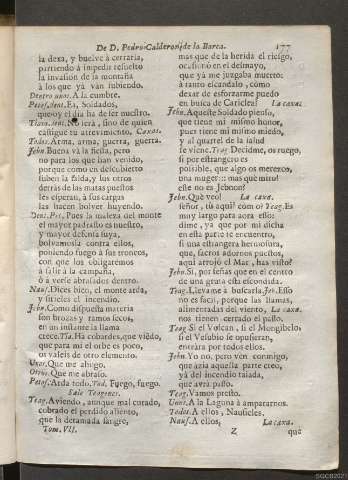 De D. Pedro Calderon de la Barca. 177
la dexa, y buelve à cerrarla,
partiendo à impedir resuelto
la invasion de la montaña
à los que yà van subiendo.
Dentro unos. A la cumbre.
Petos. dent. Ea, Soldados,
que oy el dia ha de ser nuestro.
Tiam. dent. No serà, sino de quien
castigue tu atrevimiento. Caxas.
Todos. Arma, arma, guerra, guerra.
Jebn. Buena và la fiesta, pero
no para los que han venido,
porque como en descubierto
suben la falda, y los otros
detràs de las matas puestos
les esperan, à sus cargas
las hacen bolver huyendo.
Dent. Pet. Pues la maleza del monte
el mayor padrasto es nuestro,
y mayor defensa suya,
bolvamosla contra ellos,
poniendo fuego à sus troncos,
con que los obligarèmos
à salir à la campaña,
ò à verse abrasados dentro.
Naus. Dices bien, el monte arda,
y sitieles el incendio.
Jebn. Como dispuesta materia
son brozas y ramos secos,
en un instante la llama
crece. Tia. Ha cobardes, que viēdo,
que para mi el orbe es poco,
os valeis de otro elemento.
Unos. Que me ahogo.
Otros. Que me abraso.
Petos. Arda todo. Tod. Fuego, fuego.
Sale Teagenes.
Teag. Aviendo, aunque mal curado,
cobrado el perdido aliento,
que la derramada sangre,
Tom. VII.
mas que de la herida el riesgo,
ocasionò en el desmayo,
que yà me juzgaba muerto:
à tanto escandalo, còmo
dexar de esforzarme puedo
en busca de Cariclea? La caxa.
Jebn. Aqueste Soldado pienso,
que tiene mi mismo humor,
pues tiene mi mismo miedo,
y al quartel de la salud
se viene. Teag. Decidme, os ruego,
si por estrangero es
possible, que algo os merezco,
una muger::: mas què miro!
este no es Jebnon?
Jebn. Què veo! La caxa.
señor, tù aqui? còmo? Teag. Es
muy largo para aora esso:
dime, ya que por mi dicha
en esta parte te encuentro,
si una estrangera hermosura,
que, sacros adornos puestos,
aqui arrojò el Mar, has visto?
Jebn. Si, por señas que en el centro
de una gruta està escondida.
Teag. Llevame à buscarla. Jeb. Esso
no es facil, porque las llamas,
alimentadas del viento, La caxa.
nos tienen cerrado el passo.
Teag. Si el Volcan, si el Mongibelo,
si el Vesubio se opusieran,
entrara por todos ellos.
Jebn. Yo no, pero ven conmigo,
que àzia aquella parte creo,
yà del incendio taiada,
que avrà passo.
Teag. Vamos presto.
Unos. A la Laguna à ampararnos.
Todos. A ellos, Nausicles.
Naus. A ellos, La caxa.
Z que